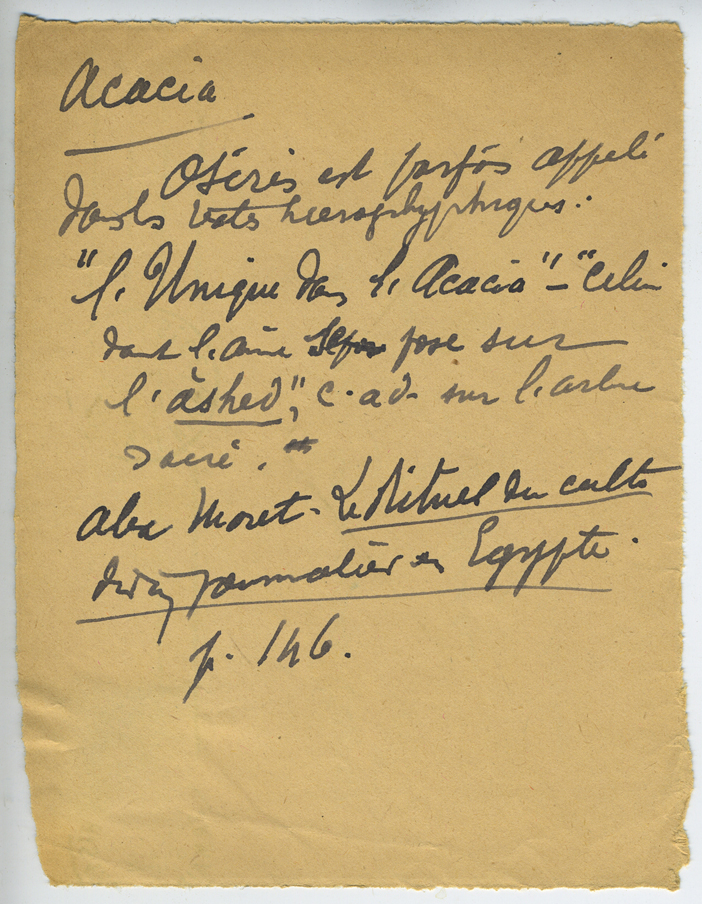 Acacia
Osiris est parfois appelé
dans les textes hieroglyphiques :
"l'Unique dans l'Acacia" – "Celui
dont l'âme pose sur
l'âshed", c.ad. sur l'arbre
sacré.
Alex Moret - Le Rituel du culte
divin journalier en Egypte.
p. 146.